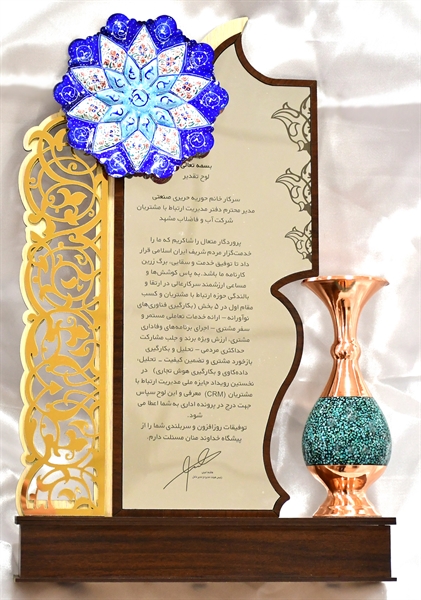 بسمه تعالی
لوح تقدیر
سرکار خانم حوریه حریری صنعتی
مدیر محترم دفتر مدیریت ارتباط با مشتریان
شرکت آب و فاضلاب مشهد
پروردگار متعال را شاکریم که ما را
خدمت‌گزار مردم شریف ایران اسلامی قرار
داد تا توفیق خدمت و سقایی، برگ زرین
کارنامه ما باشد. به پاس کوشش‌ها و
مساعی ارزشمند سرکارعالی در ارتقا و
بالندگی حوزه ارتباط با مشتریان و کسب
مقام اول در ۵ بخش (بکارگیری فناوری‌های
نوآورانه – ارائه خدمات تعاملی مستمر و
سفر مشتری – اجرای برنامه‌های وفاداری
مشتری، ارزش ویژه برند و جلب مشارکت
حداکثری مردمی – تحلیل و بکارگیری
بازخورد مشتری و تضمین کیفیت – تحلیل،
داده‌کاوی و بکارگیری هوش تجاری) در
نخستین رویداد جایزه ملی مدیریت ارتباط با
مشتریان (CRM) معرفی و این لوح سپاس
جهت درج در پرونده اداری به شما اعطا می
شود.
توفیقات روزافزون و سربلندی شما را از
پیشگاه خداوند منان مسئلت دارم.